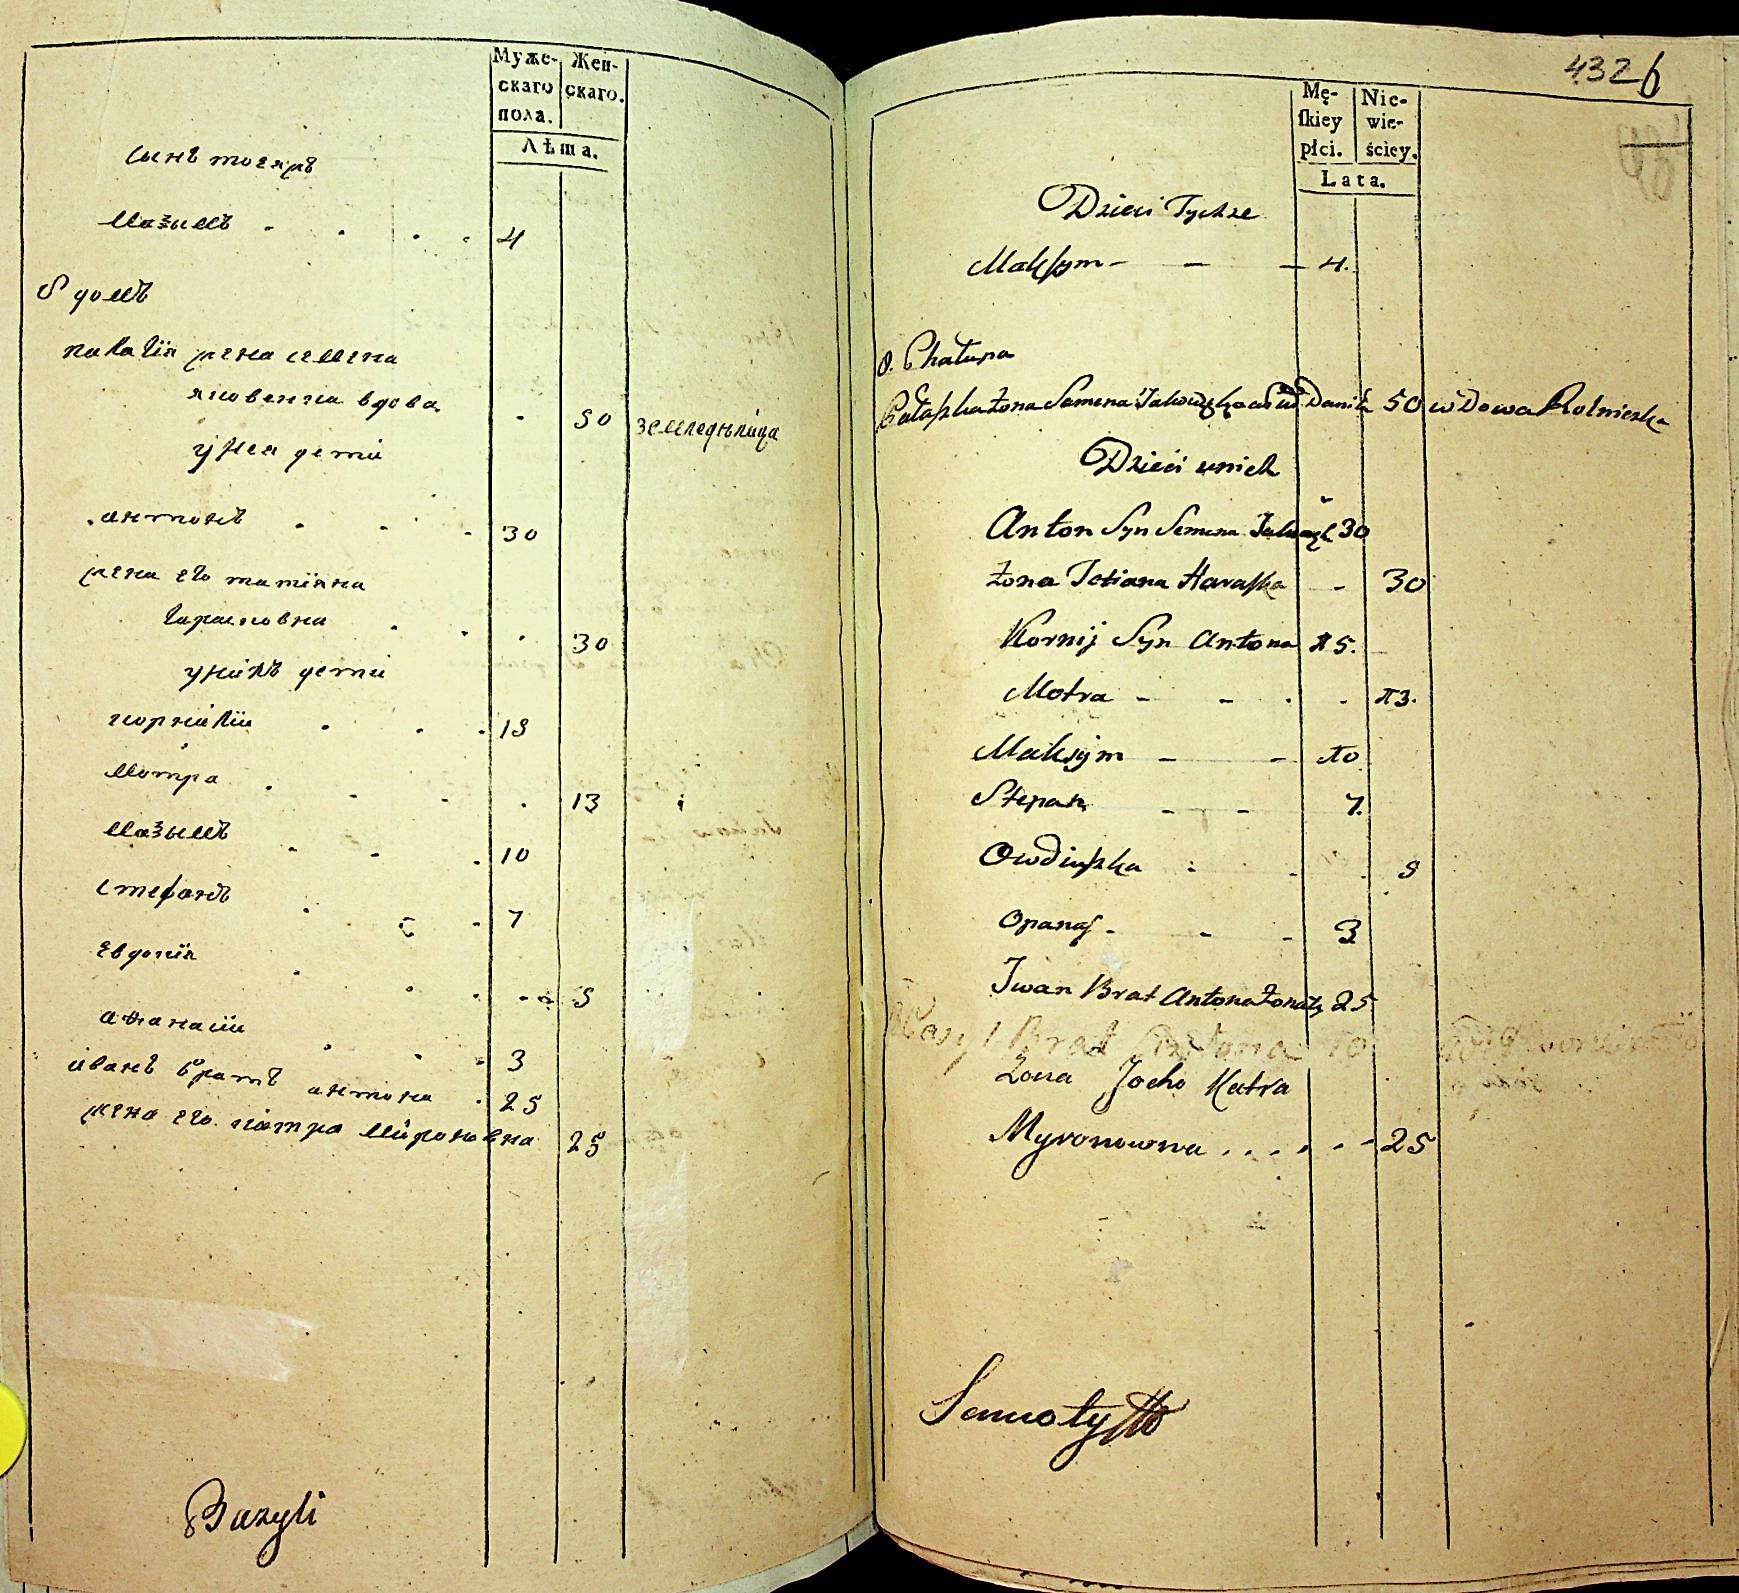 Муже-
скаго
пола.
Жен-
скаго.
Лѣта.
сынъ тоеяжъ
Маѯымъ 4
8 домъ
палагія жена семена
яковенка вдова 50 земледѣлица
у нея дети
антонъ 30
жена его татіяна
Тарасовна 30
у нихъ дети
корнилій 15
Мотра 13
Маѯымъ 10
стефанъ 7
Евдокія 5
аѳанасій 3
иванъ братъ антона 25
жена его катра Мироновна 25
Bazyli
432 б
Mę-
ſkiey
płci.
Nie-
wie-
ściey.
Lata.
Dzieci Tychże
Makſym 4
8. Chałupa
Pałaſzka żona Semena 50 wdowa Rolniczka
Dzieci u nich
Anton Syn Semena 30
żona Tetiana Haraſka 30
Kornij Syn Antona 15.
Motra 13.
Maksym 10
Stepan 7.
Owdiuſzka 5
Opanaſ 3
Iwan Brat Antona żonaty 25
Wasyl Brat Antona 10
żona Jocho Katra
Myronowna 25